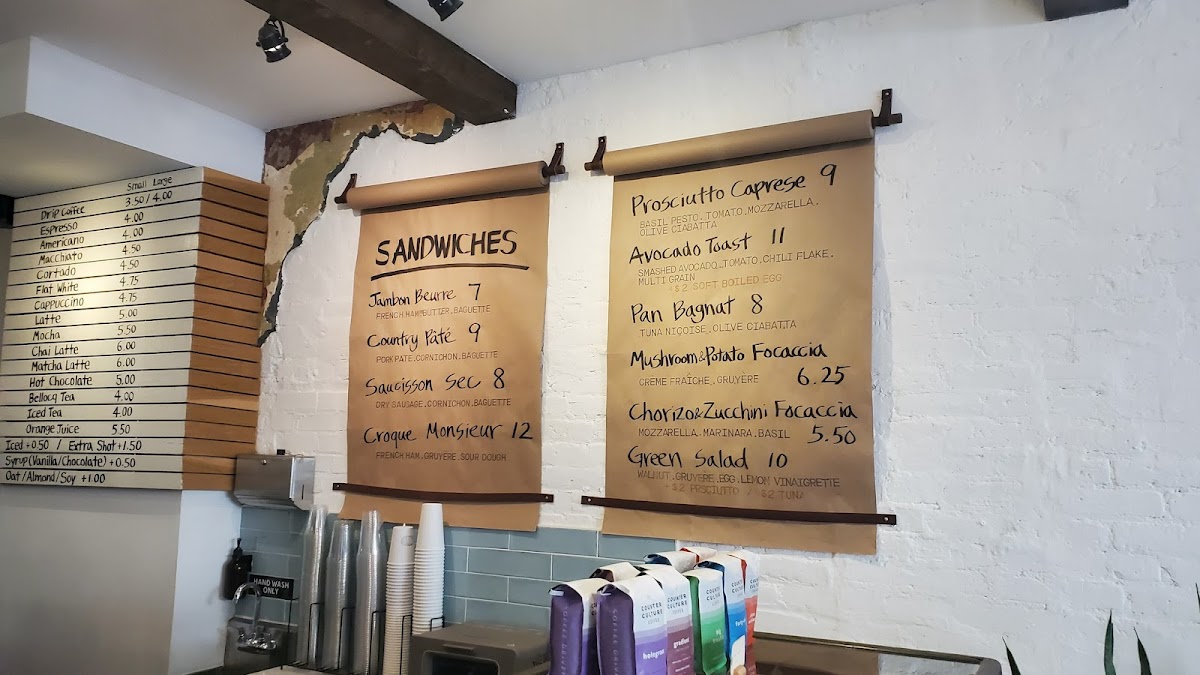 Small Large
Drip Coffee 3.50 / 4.00
Espresso 4.00
Americano 4.00
Macchiato 4.50
Cortado 4.50
Flat White 4.75
Cappuccino 4.75
Latte 5.00
Mocha 5.50
Chai Latte 6.00
Matcha Latte 6.00
Hot Chocolate 5.00
Bellocq Tea 4.00
Iced Tea 4.00
Orange Juice 5.50
Iced +0.50 / Extra Shot +1.50
Syrup (Vanilla/Chocolate) +0.50
Oat/Almond/Soy +1.00
SANDWICHES
Jambon Beurre 7
FRENCH HAM.BUTTER.BAGUETTE
Country Pâté 9
PORK PATE.CORNICHON.BAGUETTE
Saucisson Sec 8
DRY SAUSAGE.CORNICHON.BAGUETTE
Croque Monsieur 12
FRENCH HAM.GRUYERE.SOUR DOUGH
Prosciutto Caprese 9
BASIL PESTO.TOMATO.MOZZARELLA.
OLIVE CIABATTA
Avocado Toast 11
SMASHED AVOCADO.TOMATO.CHILI FLAKE.
MULTI GRAIN
+$2 SOFT BOILED EGG
Pan Bagnat 8
TUNA NIÇOISE.OLIVE CIABATTA
Mushroom&Potato Focaccia
CREME FRAÎCHE.GRUYÈRE 6.25
Chorizo&Zucchini Focaccia
MOZZARELLA.MARINARA.BASIL 5.50
Green Salad 10
WALNUT.GRUYERE.EGG.LEMON VINAIGRETTE
+$2 PRSCIUTTO / $2 TUNA
HAND WASH
ONLY
COUNTER
CULTURE
COFFEE
hologram
COUNTER
CULTURE
gradient
COUNTER
CULTURE